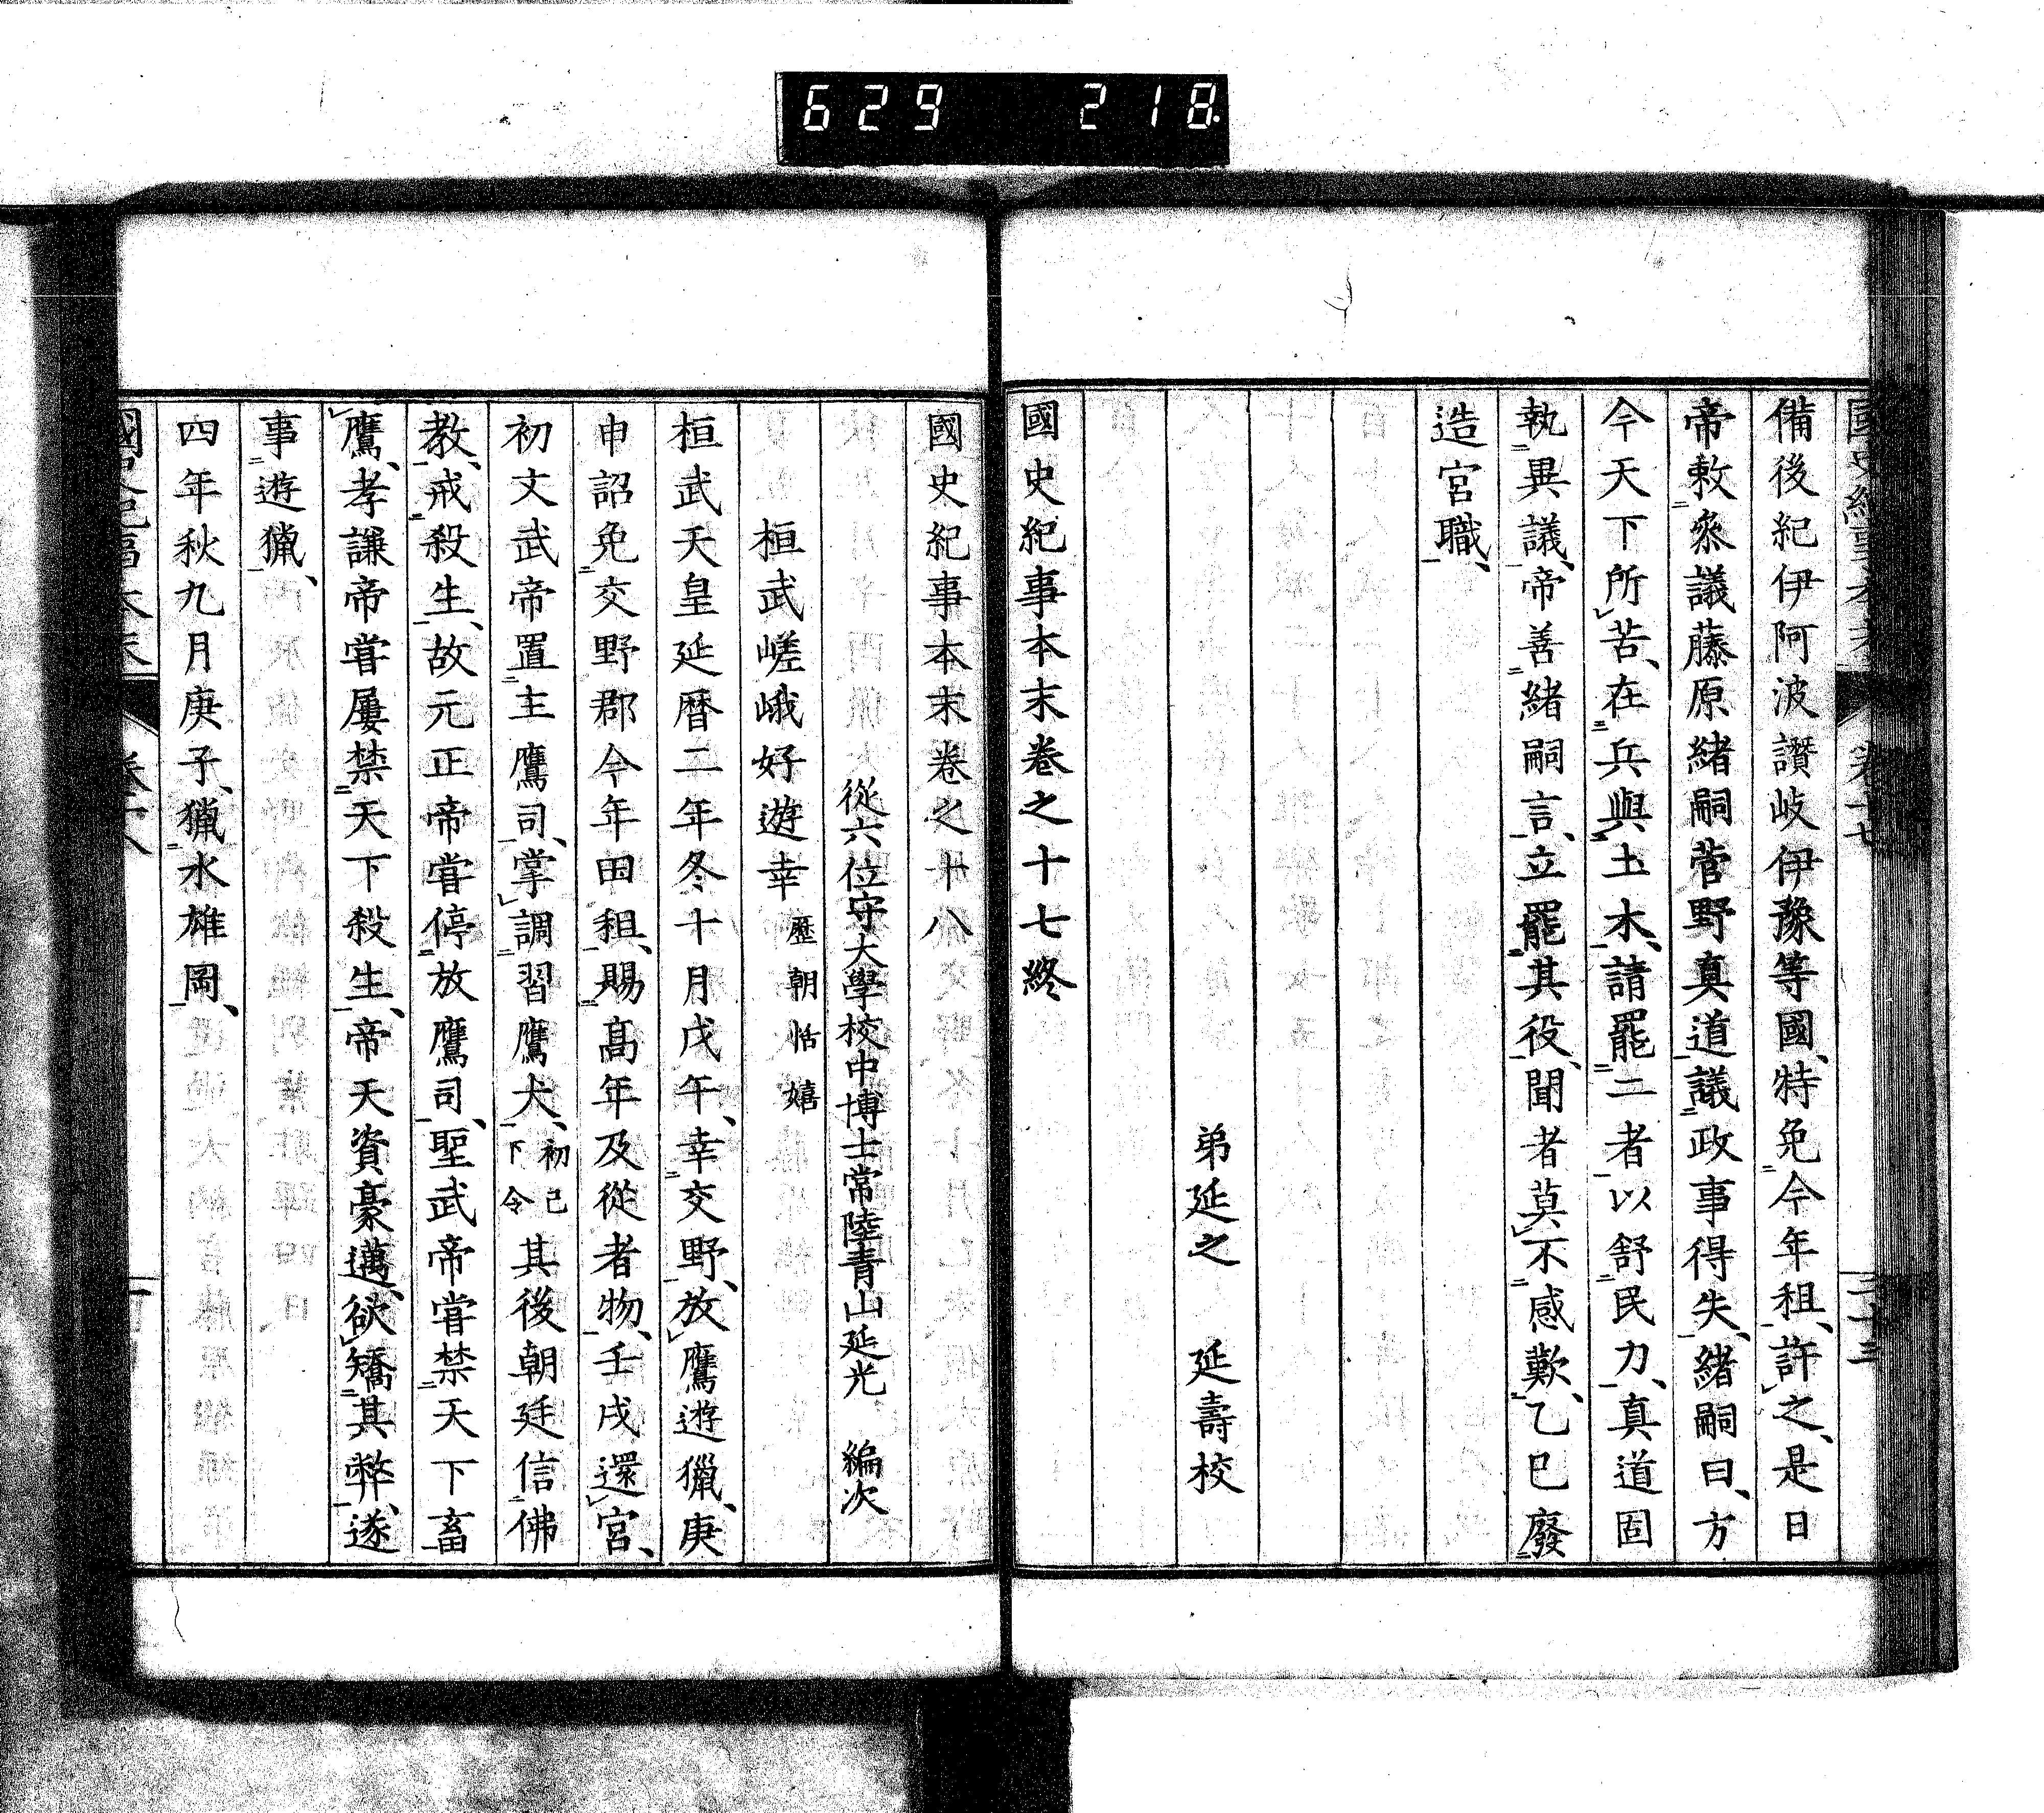 629 218
備後紀伊阿波讚岐伊豫等國、特免今年租、許之、是日
帝敕叅議藤原緒嗣菅野真道議政事得失、緒嗣曰、方
今天下所苦、在兵與土木、請罷二者以舒民力、真道固
執異議、帝善緒嗣言、立罷其役、聞者莫不感歎、乙巳廢
造宮職、
弟延之 延壽校
國史紀事本末卷之十七終
國史紀事本末卷之十八
從六位守大學校中博士常陸青山延光 編次
桓武嵯峨好遊幸 歷朝恬嬉
桓武天皇延暦二年冬十月戊午、幸交野、放鷹遊獵、庚
申詔免交野郡今年田租、賜高年及從者物、壬戌還宮、
初文武帝置主鷹司、掌調習鷹犬、初已下令其後朝廷信佛
教、戒殺生、故元正帝嘗停放鷹司、聖武帝嘗禁天下畜
鷹、孝謙帝嘗屢禁天下殺生、帝天資豪邁、欲矯其弊、遂
事遊獵、
四年秋九月庚子、獵水雄岡、